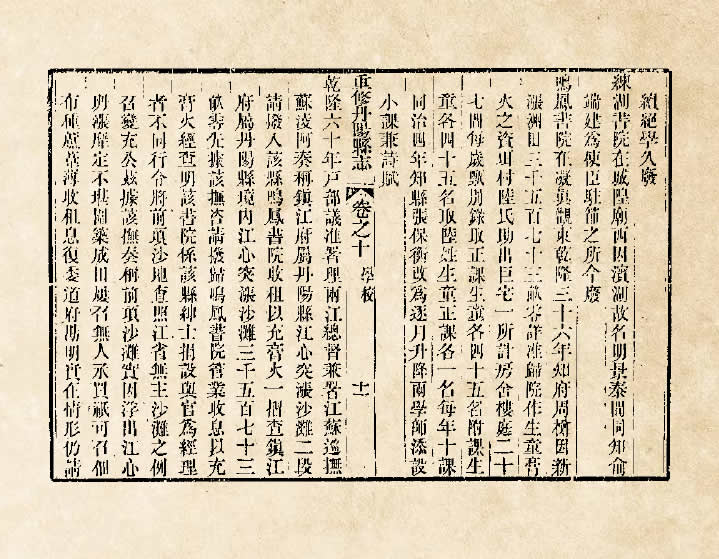 續絕學久廢
練湖書院在城隍廟西因濱湖故名明景泰間同知俞
端建爲使臣駐節之所今廢
鳴鳳書院在凝眞觀東乾隆三十六年知府周樽因新
漲洲田三千五百七十三畝零詳准歸院作生童膏
火之資圳村陸氏助出巨宅一所計房舍樓庭二十
七間每歲甄別錄取正課生童各四十五名附課生
童各四十五名取陸姓生童正課各一名每年十課
同治四年知縣張保衡改爲逐月升降兩學師添設
小課兼詩賦
重修丹陽縣志 卷之十 學校 十一
乾隆六十年戸部議准署理兩江總督兼署江蘇巡撫
蘇淩阿奏稱鎭江府屬丹陽縣江心突漲沙灘二段
請撥入該縣鳴鳳書院收租以充膏火一摺查鎭江
府屬丹陽縣境內江心突漲沙灘三千五百七十三
畝零先據該撫咨請撥歸鳴鳳書院管業收息以充
膏火經查明該書院係該縣紳士捐設與官爲經理
者不同行令將前項沙地查照江省無主沙灘之例
召變充公茲據該撫奏稱前項沙灘實因浮出江心
坍漲靡定不堪圍築成田屢召無人承買祇可召佃
布種蘆葦薄收租息復委道府勘明實在情形仍請